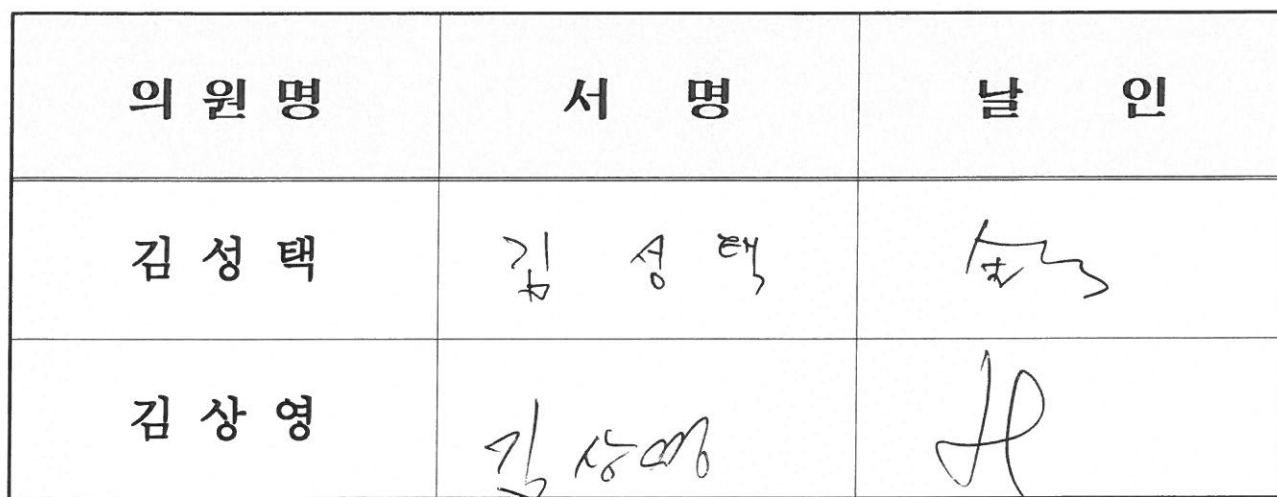 의원명 서 명 날 인
김성택 김 성 택
김상영 김상영